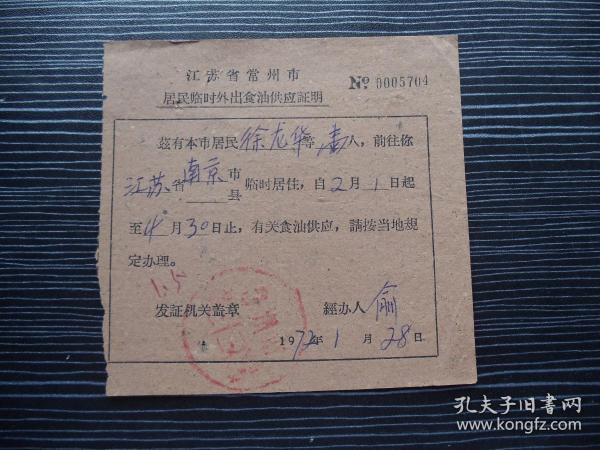 江苏省常州市
居民临时外出食油供应証明
№ 0005704
兹有本市居民徐龙华等壹人，前往你
江苏省南京市
县
临时居住，自2月1日起
至4月30日止，有关食油供应，請按当地規
定办理。
1.5
发証机关盖章 經办人俞
1972年1月28日
孔夫子旧书网
www.kongfz.com